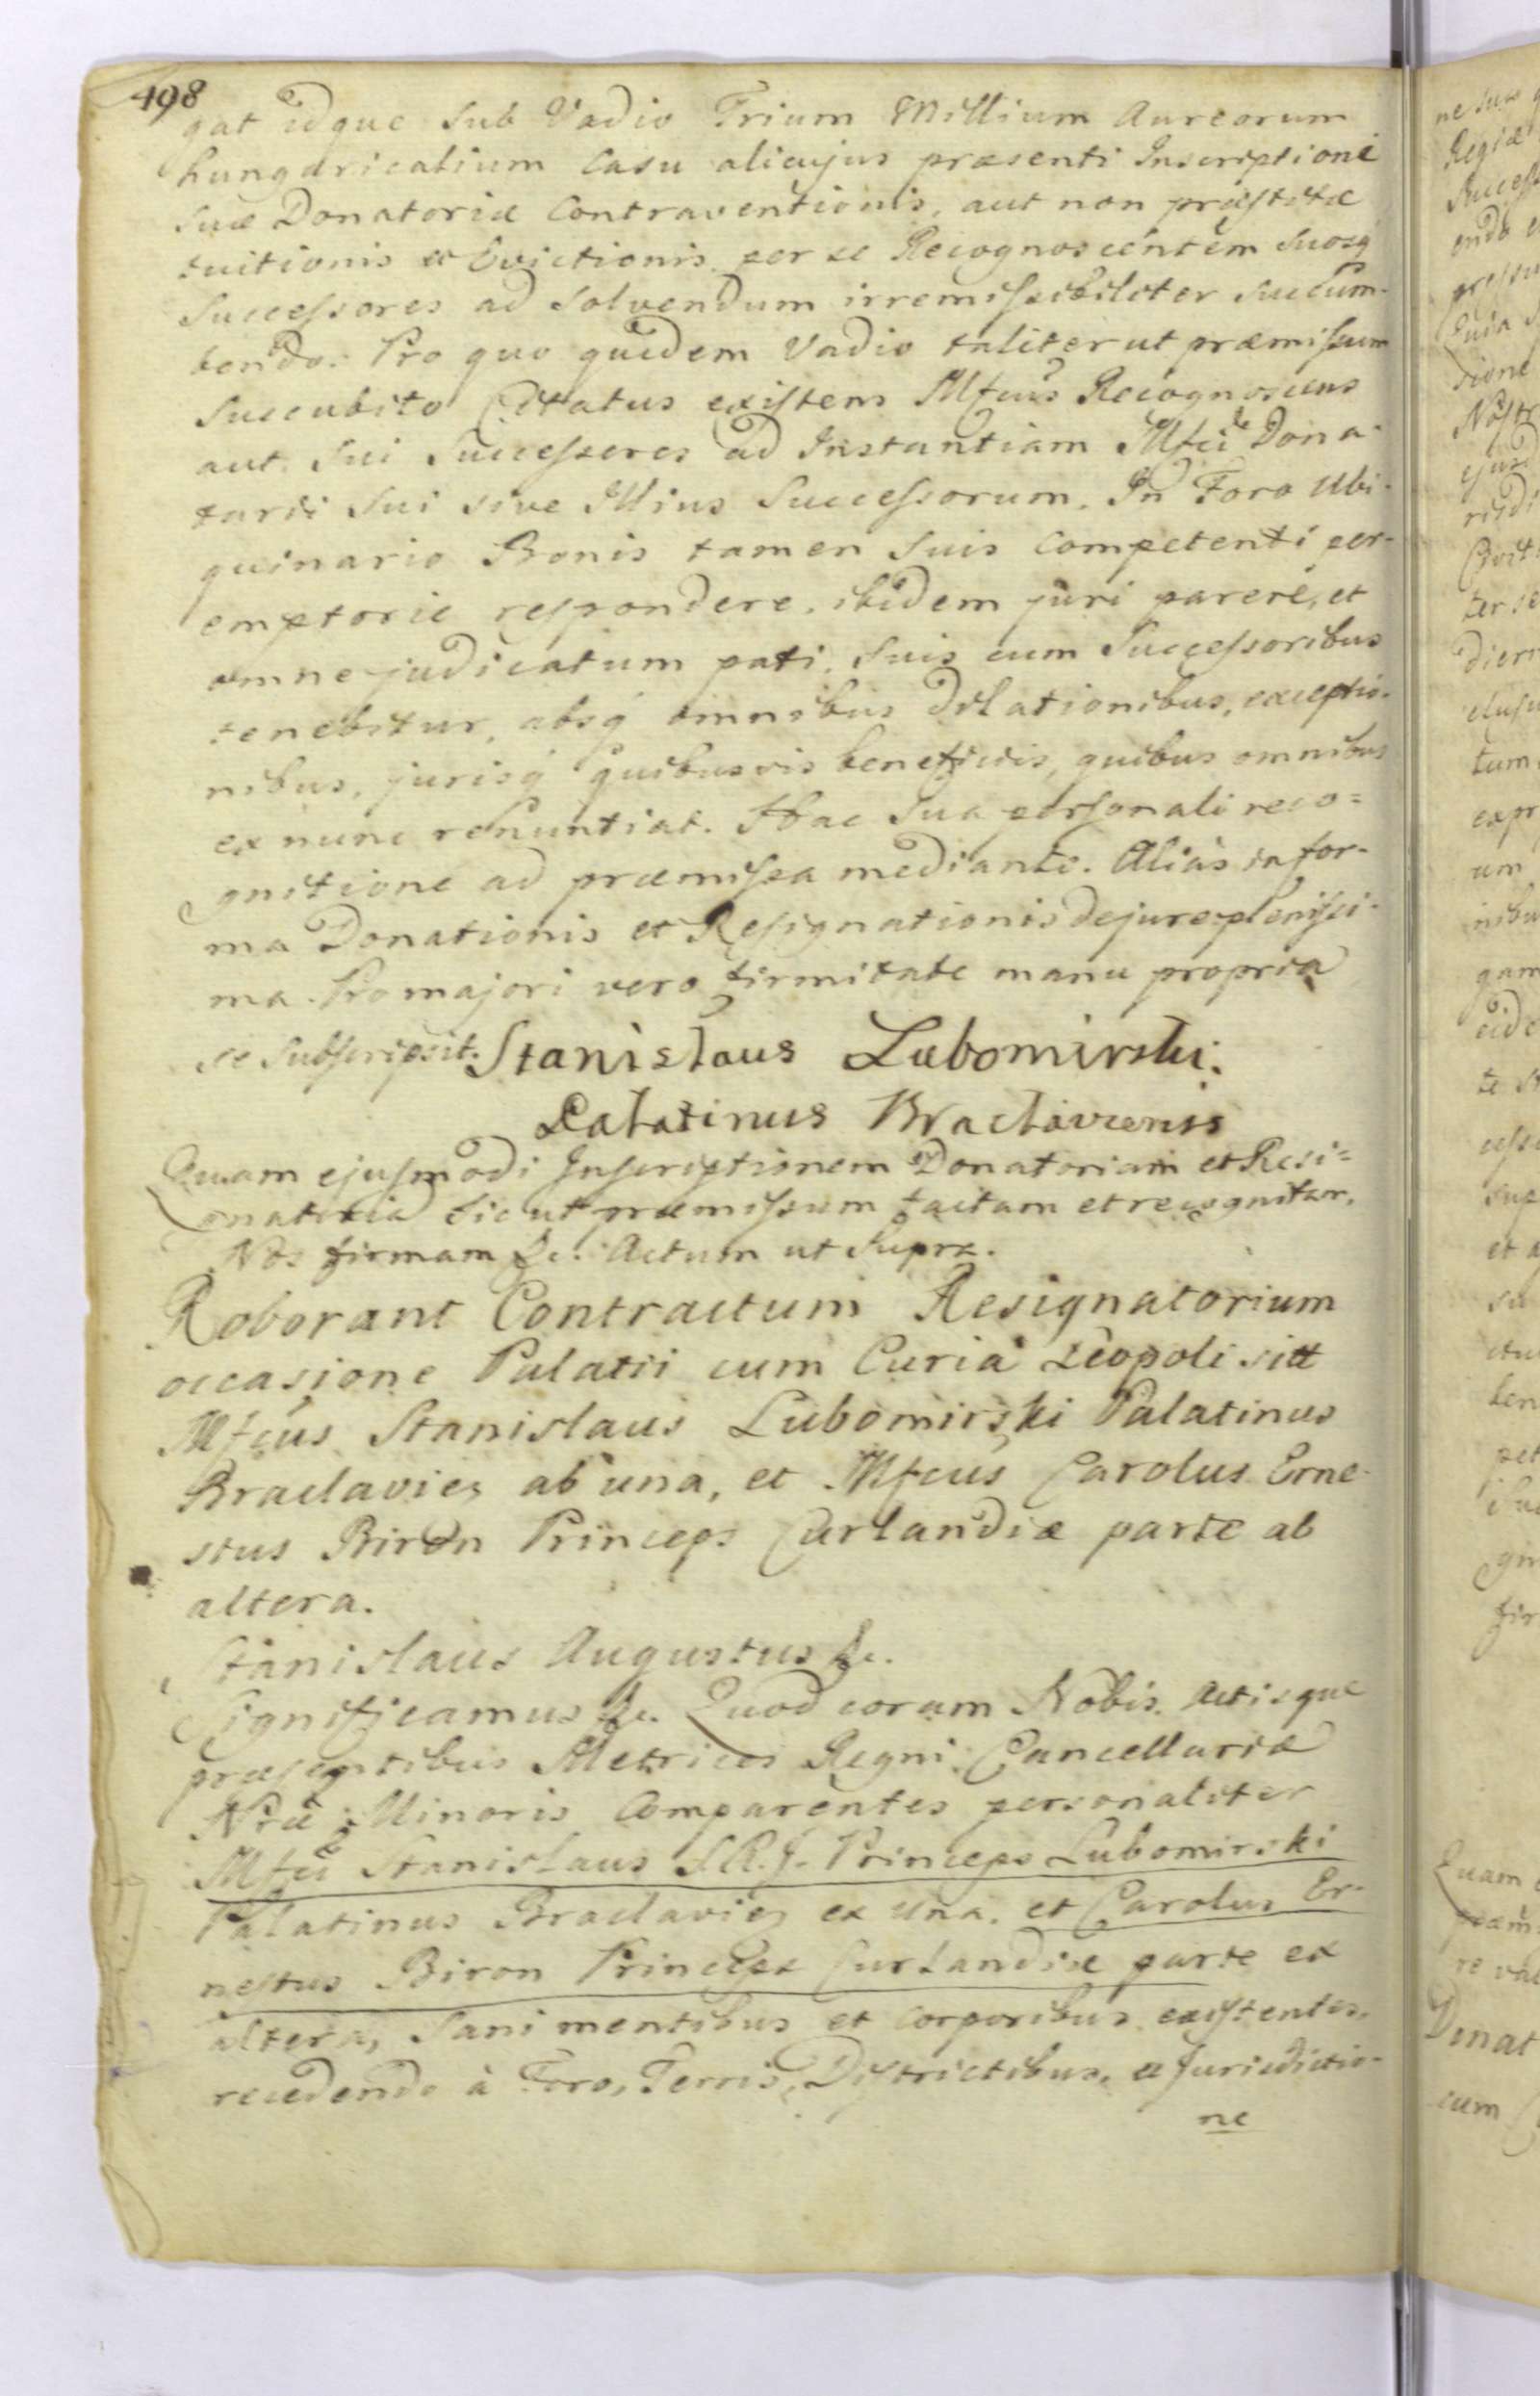 498
gat idque sub Vadio Trium Millium Aureorum
hungaricalium Casu alicujus præsenti Inscriptioni
suæ Donatoriæ Contraventionis, aut non præstitæ
tuitionis et Evictionis per se Recognoscentem suosq
Successores ad solvendum irremissibiliter succum-
bendo. Pro quo quidem Vadio taliter ut præmissum
succubito Citatus existens Mfcus Recognoscens
aut sui Successores ad Instantiam Mfci Dona-
tarii sui sive Illius Successorum. In Foro Ubi-
quinario Bonis tamen suis Competenti per-
emptorie respondere, ibidem juri parere, et
omne judicatum pati, suis cum Successoribus
tenebitur, absq omnibus dilationibus, exceptio-
nibus, jurisq quibusvis beneficiis, quibus omnibus
ex nunc renuntiat. Hac sua personali reco=
gnitione ad præmissa mediante. Alias in for-
ma Donationis et Resignationis de jure plenissi-
ma. Pro majori vero firmitate manu propria
se subscripsit. Stanislaus Lubomirski.
Palatinus Braclaviensis
Quam ejusmodi Inscriptionem Donatoriam et Resi=
gnatoria sicut præmissum factam et recognitam.
Nos firmam &c. Actum ut Supra.
Roborant Contractum Resignatorium
occasione Palatii cum Curia Leopoli sitt
Mfcus Stanislaus Lubomirski Palatinus
Braclavien ab una, et Mfcus Carolus Erne-
stus Biron Princeps Curlandiæ parte ab
altera.
Stanislaus Augustus &c.
Significamus &c. Quod coram Nobis Actisque
præsentibus Metrices Regni Cancellariæ
Nræ Minoris Comparentes personaliter
Mfci Stanislaus S.R.J. Princeps Lubomirski
Palatinus Braclavien ex una, et Carolus Er-
nestus Biron Princeps Curlandiæ parte ex
altera, sani mentibus et corporibus existentes,
recedendo à Foro, Terris, Districtibus, et Jurisdictio-
ne